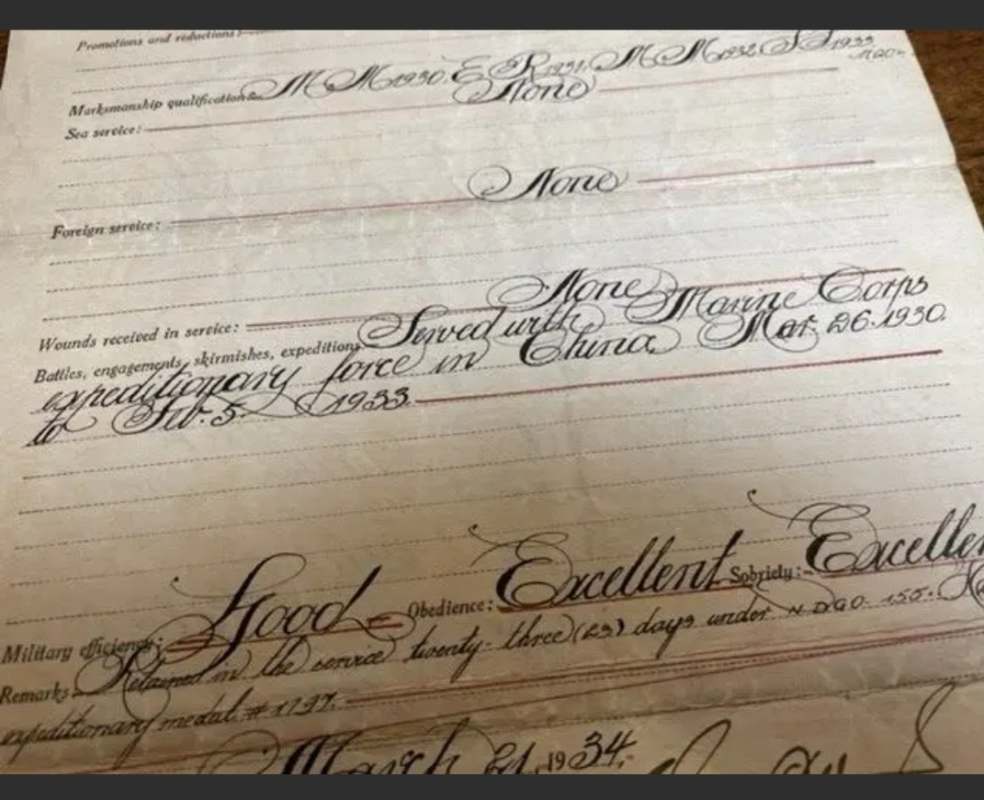 Promotions and reductions:
Marksmanship qualifications: M M 1930, E R 1931, M M 1932, SS 1933
Sea service: None
None
Foreign service:
None
Wounds received in service:
Battles, engagements, skirmishes, expeditions: Served with Marine Corps
expeditionary force in China, Mar. 26. 1930.
to Feb. 5 1933.
Military efficiency: Good Obedience: Excellent Sobriety: Excellen
Remarks: Retained in the service twenty-three (23) days under N D G O 155.
expeditionary medal # 1797.
March 21, 1934.